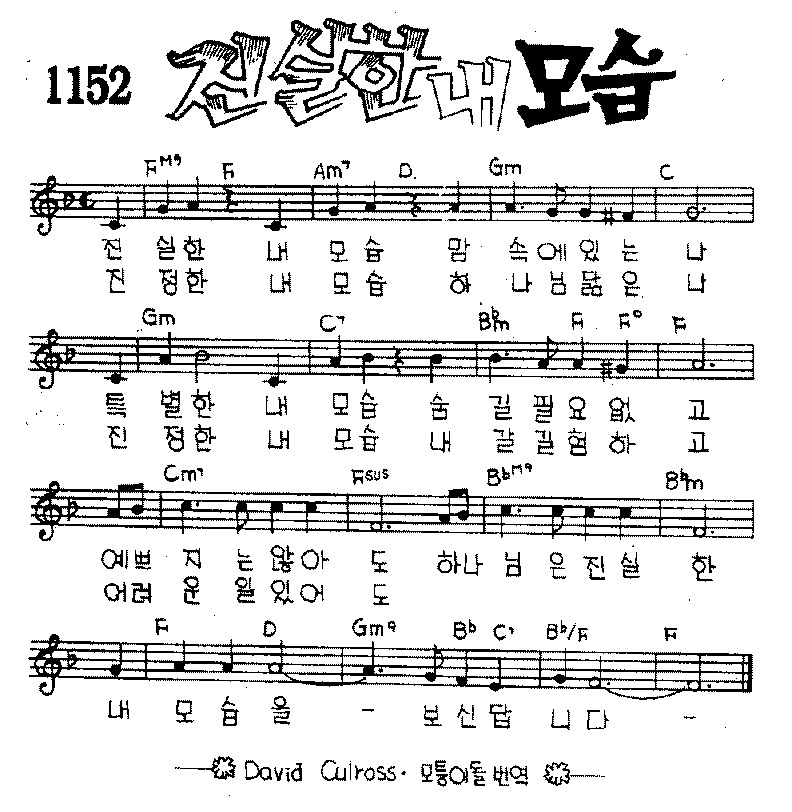 1152 진실한 내 모습
FM9 F Am7 D. Gm C
진 실한 내 모습 맘 속에있 는 나
진 정한 내 모습 하 나님닮 은 나
Gm C7 Bbm F F° F
특 별한 내 모습 숨 길필요없 고
진 정한 내 모습 내 갈길험하 고
Cm7 Fsus BbM9 Bbm
예쁘 지 는않아 도 하나 님 은진실 한
어려 운 일있어 도
F D Gm9 Bb C7 Bb/F F
내 모 습 을 - 보신답 니다 -
David Culross. 모퉁이돌 번역